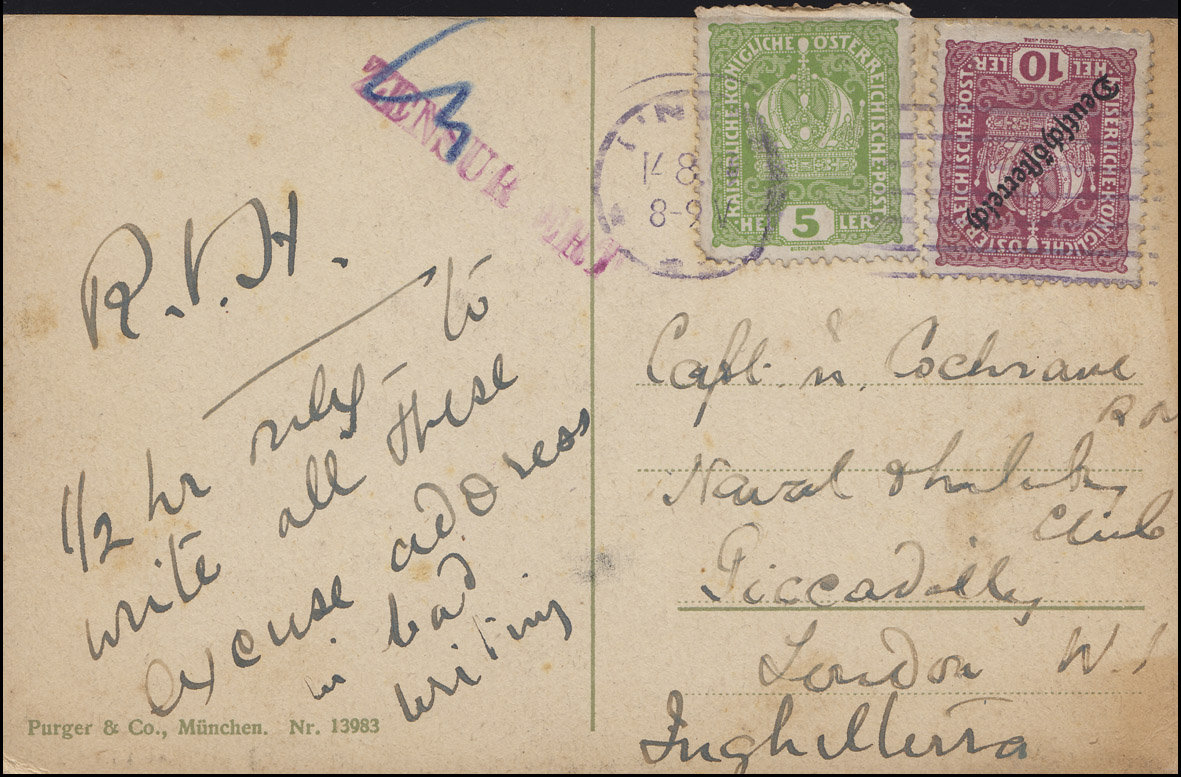 ZENSURIERT
LINZ
14 8
8-9 V
KAISERLICHE·KÖNIGLICHE·ÖSTERREICHISCHE·POST
5
HELLER
KAISERLICHE·KÖNIGLICHE·ÖSTERREICHISCHE·POST
10
HELLER
Deutschösterreich
R.V.H.
1/2 hr only to
write all these
excuse address
in bad
writing
Capt. Cochrane
R N
Naval & Military
Club
Piccadilly
London W.1
Inghilterra
Purger & Co., München. Nr. 13983